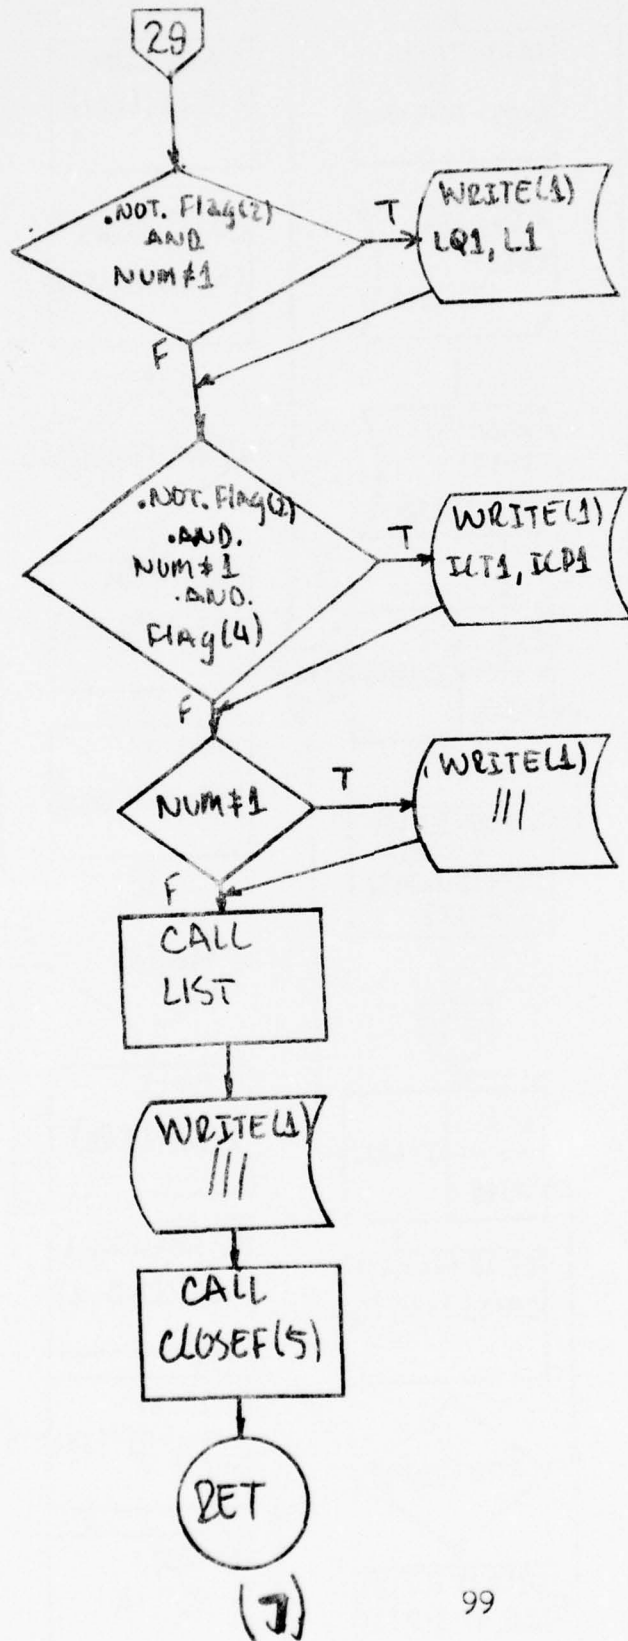 29
.NOT. Flag(2)
AND
NUM≠1
T
WRITE(1)
LQ1, L1
F
.NOT. Flag(2)
.AND.
NUM≠1
.AND.
Flag(4)
T
WRITE(1)
ICT1, ICP1
F
NUM≠1
T
WRITE(1)
///
F
CALL
LIST
WRITE(1)
///
CALL
CLOSEF(5)
RET
(7)
99